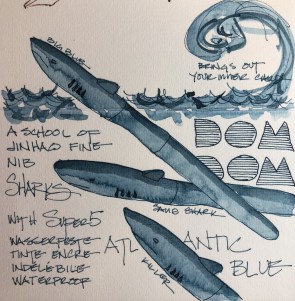 BIG BLUE
BRINGS OUT
YOUR INNER
A SCHOOL OF
JINHAO FINE
NIB
SHARKS
DOM
DOM
SAME SHARK
WITH SUPER5
WASSERFESTE
TINTE ENCRE
INDÉLÉBILE
WATERPROOF
ATLANTIC
BLUE
KILLER